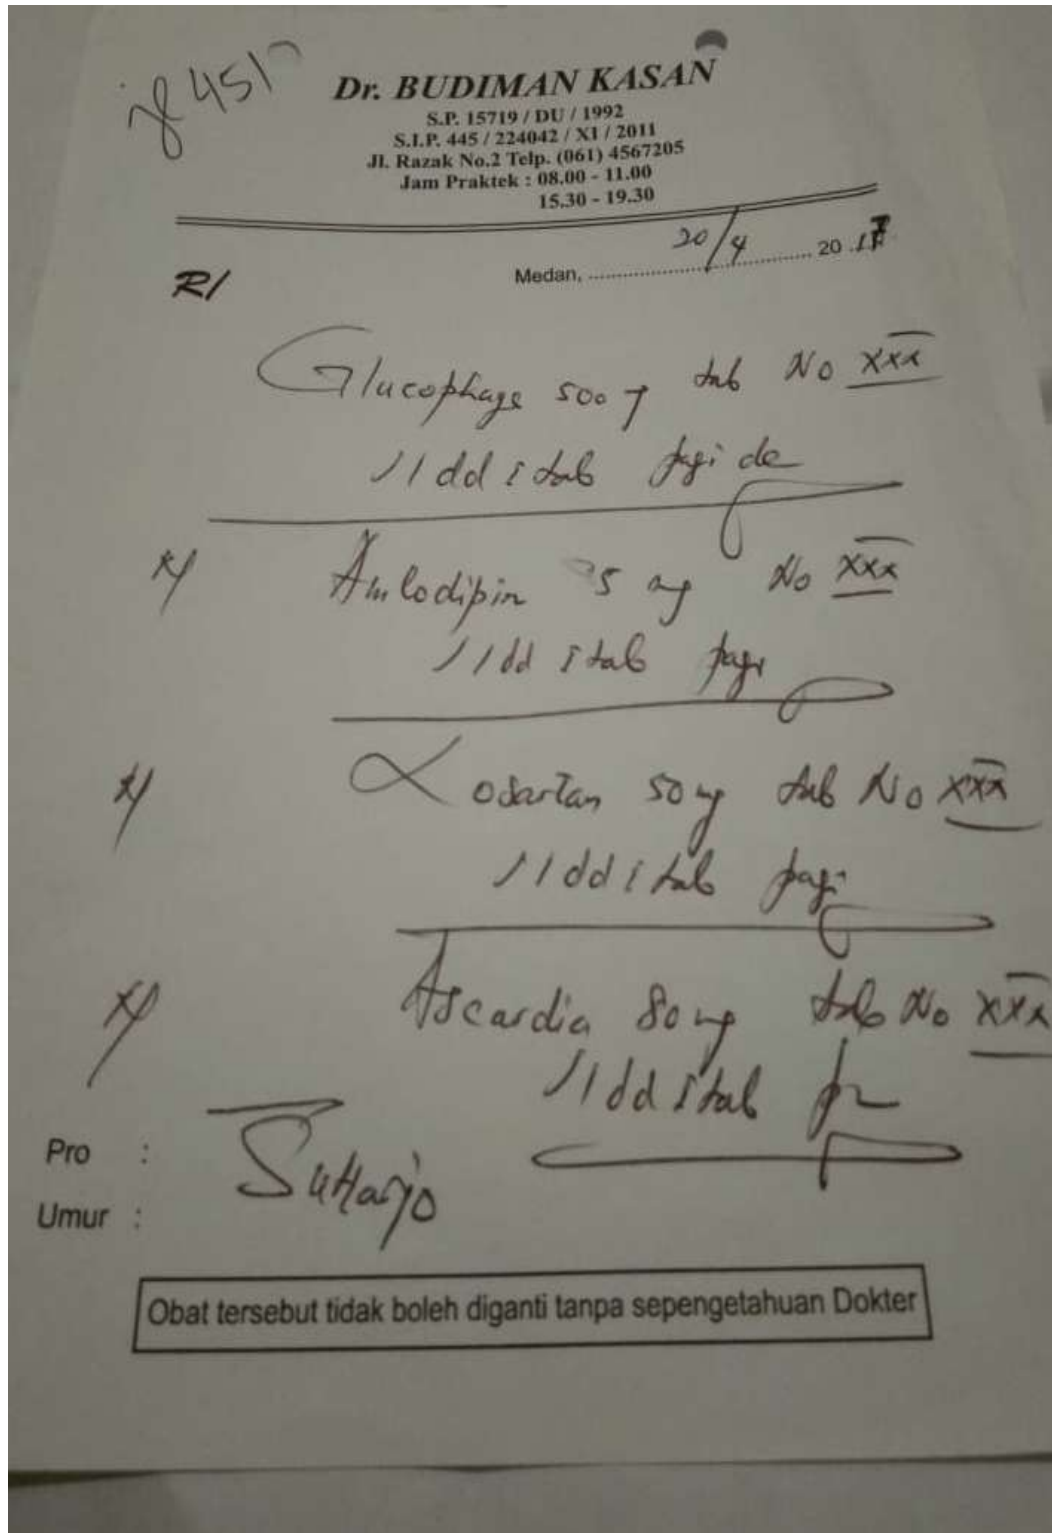 4510
Dr. BUDIMAN KASAN
S.P. 15719 / DU / 1992
S.I.P. 445 / 224042 / XI / 2011
Jl. Razak No.2 Telp. (061) 4567205
Jam Praktek : 08.00 - 11.00
15.30 - 19.30
Medan, 20/4 2017
R/
Glucophage 500 tab No XXX
S 1 dd I tab pagi
R/ Amlodipin 5 mg No XXX
S 1 dd I tab pagi
R/ Losartan 50 mg tab No XXX
S 1 dd I tab pagi
R/ Ascardia 80 mg tab No XXX
S 1 dd I tab
Pro : Suharjo
Umur :
Obat tersebut tidak boleh diganti tanpa sepengetahuan Dokter